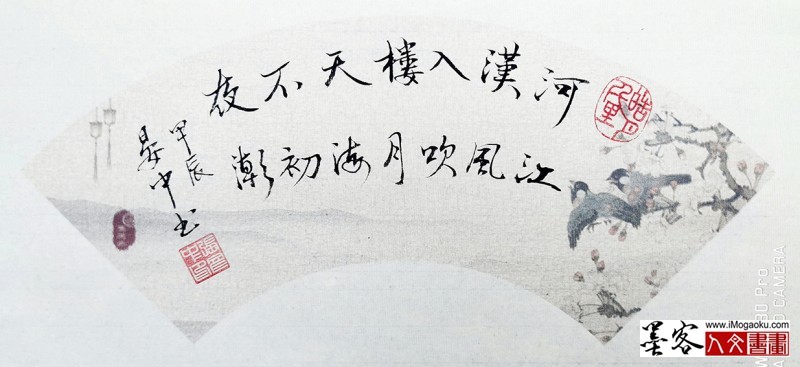 河漢入樓天不夜
江風吹月海初潮
甲辰
晏中书
30 Pro
CAMERA
墨客
www.iMogaoku.com
人文書畫